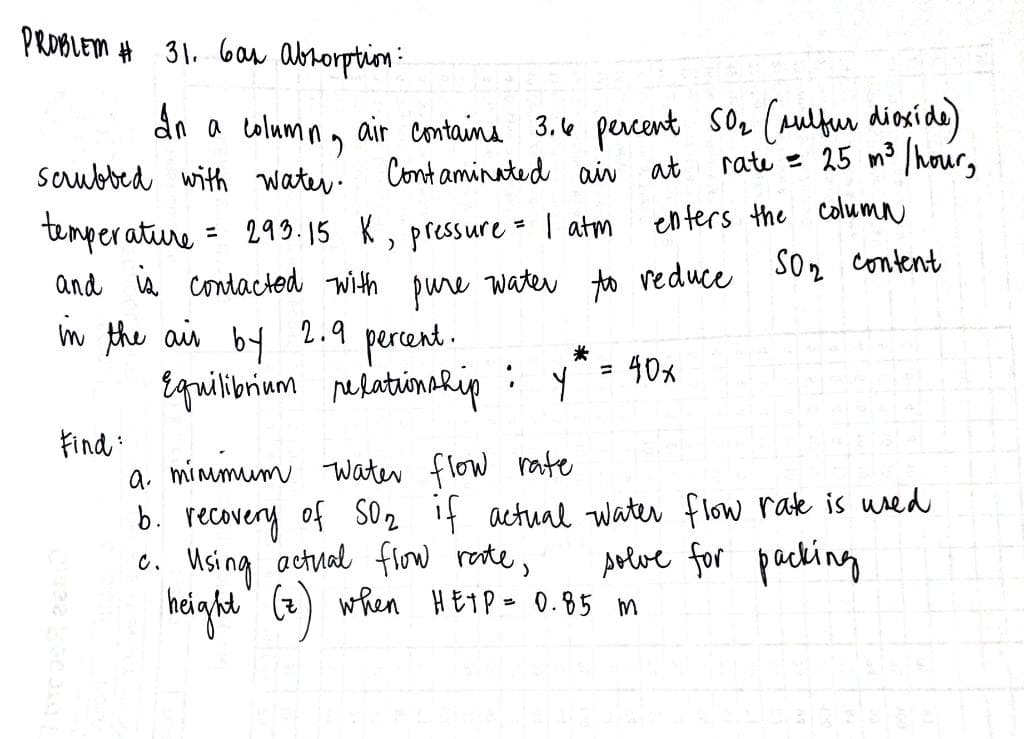 PROBLEM # 31. Gas Absorption:
In a column, air contains 3.6 percent SO₂ (sulfur dioxide)
scrubbed with water. Contaminated air at rate = 25 m³/hour,
temperature = 293.15 K, pressure = 1 atm enters the column
and is contacted with pure water to reduce SO₂ content
in the air by 2.9 percent.
Equilibrium relationship : y* = 40x
Find:
a. minimum water flow rate
b. recovery of SO₂ if actual water flow rate is used
c. Using actual flow rate, solve for packing
height (z) when HETP = 0.85 m